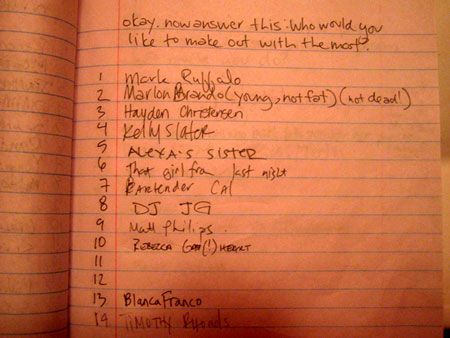 okay. now answer this: who would you
like to make out with the most?
1 Mark Ruffalo
2 Marlon Brando (young, not fat) (not dead!)
3 Hayden Christensen
4 Kelly Slator
5 ALEXA'S SISTER
6 That girl from last night
7 BARTENDER CAL
8 DJ JG
9 Matt Philips.
10 REBECCA (!) HEART
11
12
13 Blanca Franco
14 TIMOTHY